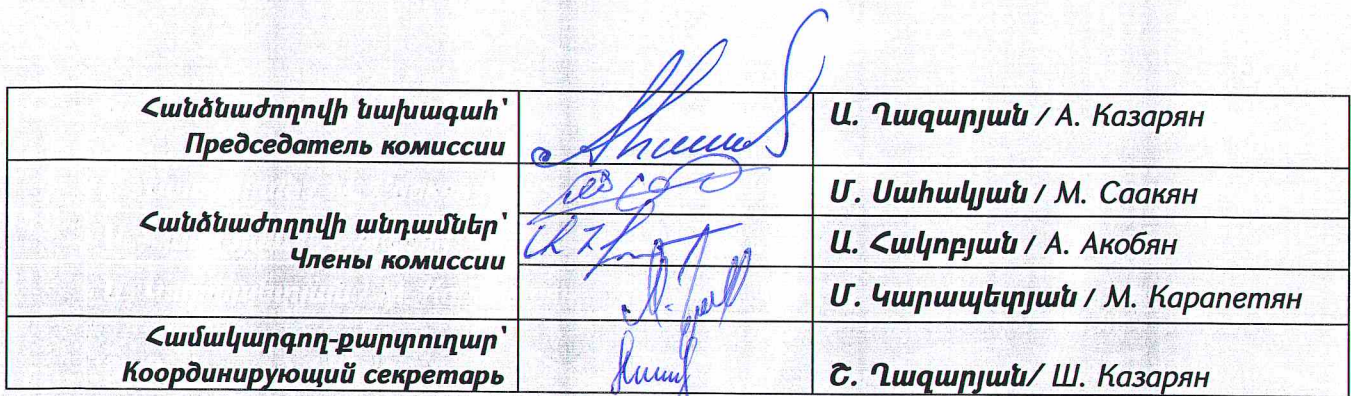 Հանձնաժողովի նախագահ՝
Председатель комиссии
Ա. Ղազարյան / А. Казарян
Հանձնաժողովի անդամներ՝
Члены комиссии
Մ. Սահակյան / М. Саакян
Ա. Հակոբյան / А. Акобян
Մ. Կարապետյան / М. Карапетян
Համակարգող-քարտուղար՝
Координирующий секретарь
Շ. Ղազարյան/ Ш. Казарян